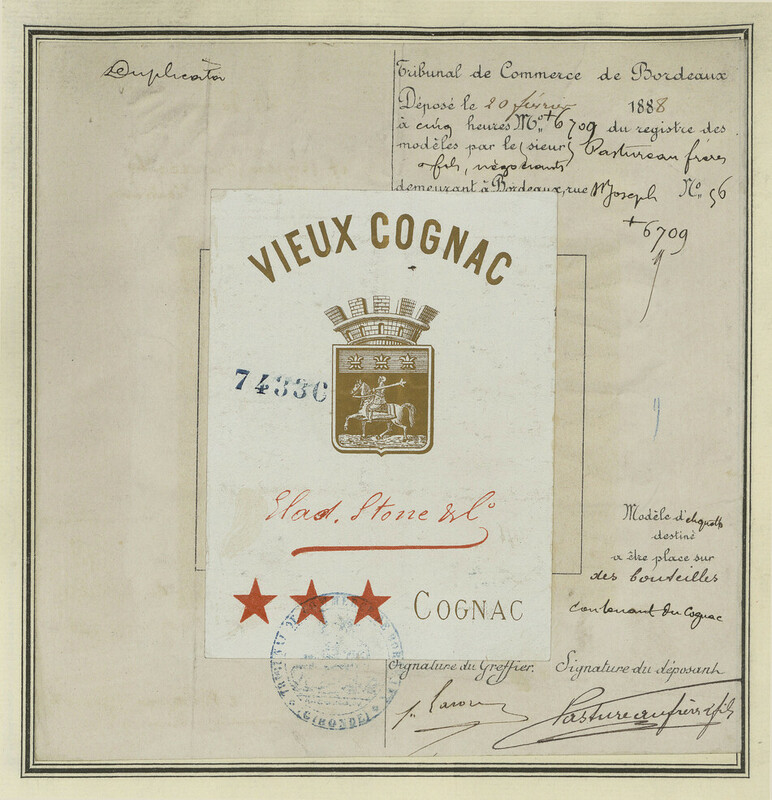 Duplicata
Tribunal de Commerce de Bordeaux
Déposé le 20 février 1888
à cinq heures Mo. + 6709 du registre des
modèles par le (sieur) Pastureau frères
& fils, négociants
demeurant à Bordeaux, rue St Joseph No. 56
+6709
VIEUX COGNAC
74330
Stone & Co
★ ★ ★ COGNAC
Modèle d'étiquette
destiné
a être place sur
des bouteilles
contenant du Cognac
TRIBUNAL DE COMMERCE DE BORDEAUX
GIRONDE
Signature du Greffier. Signature du déposant
Pastureau frères & fils